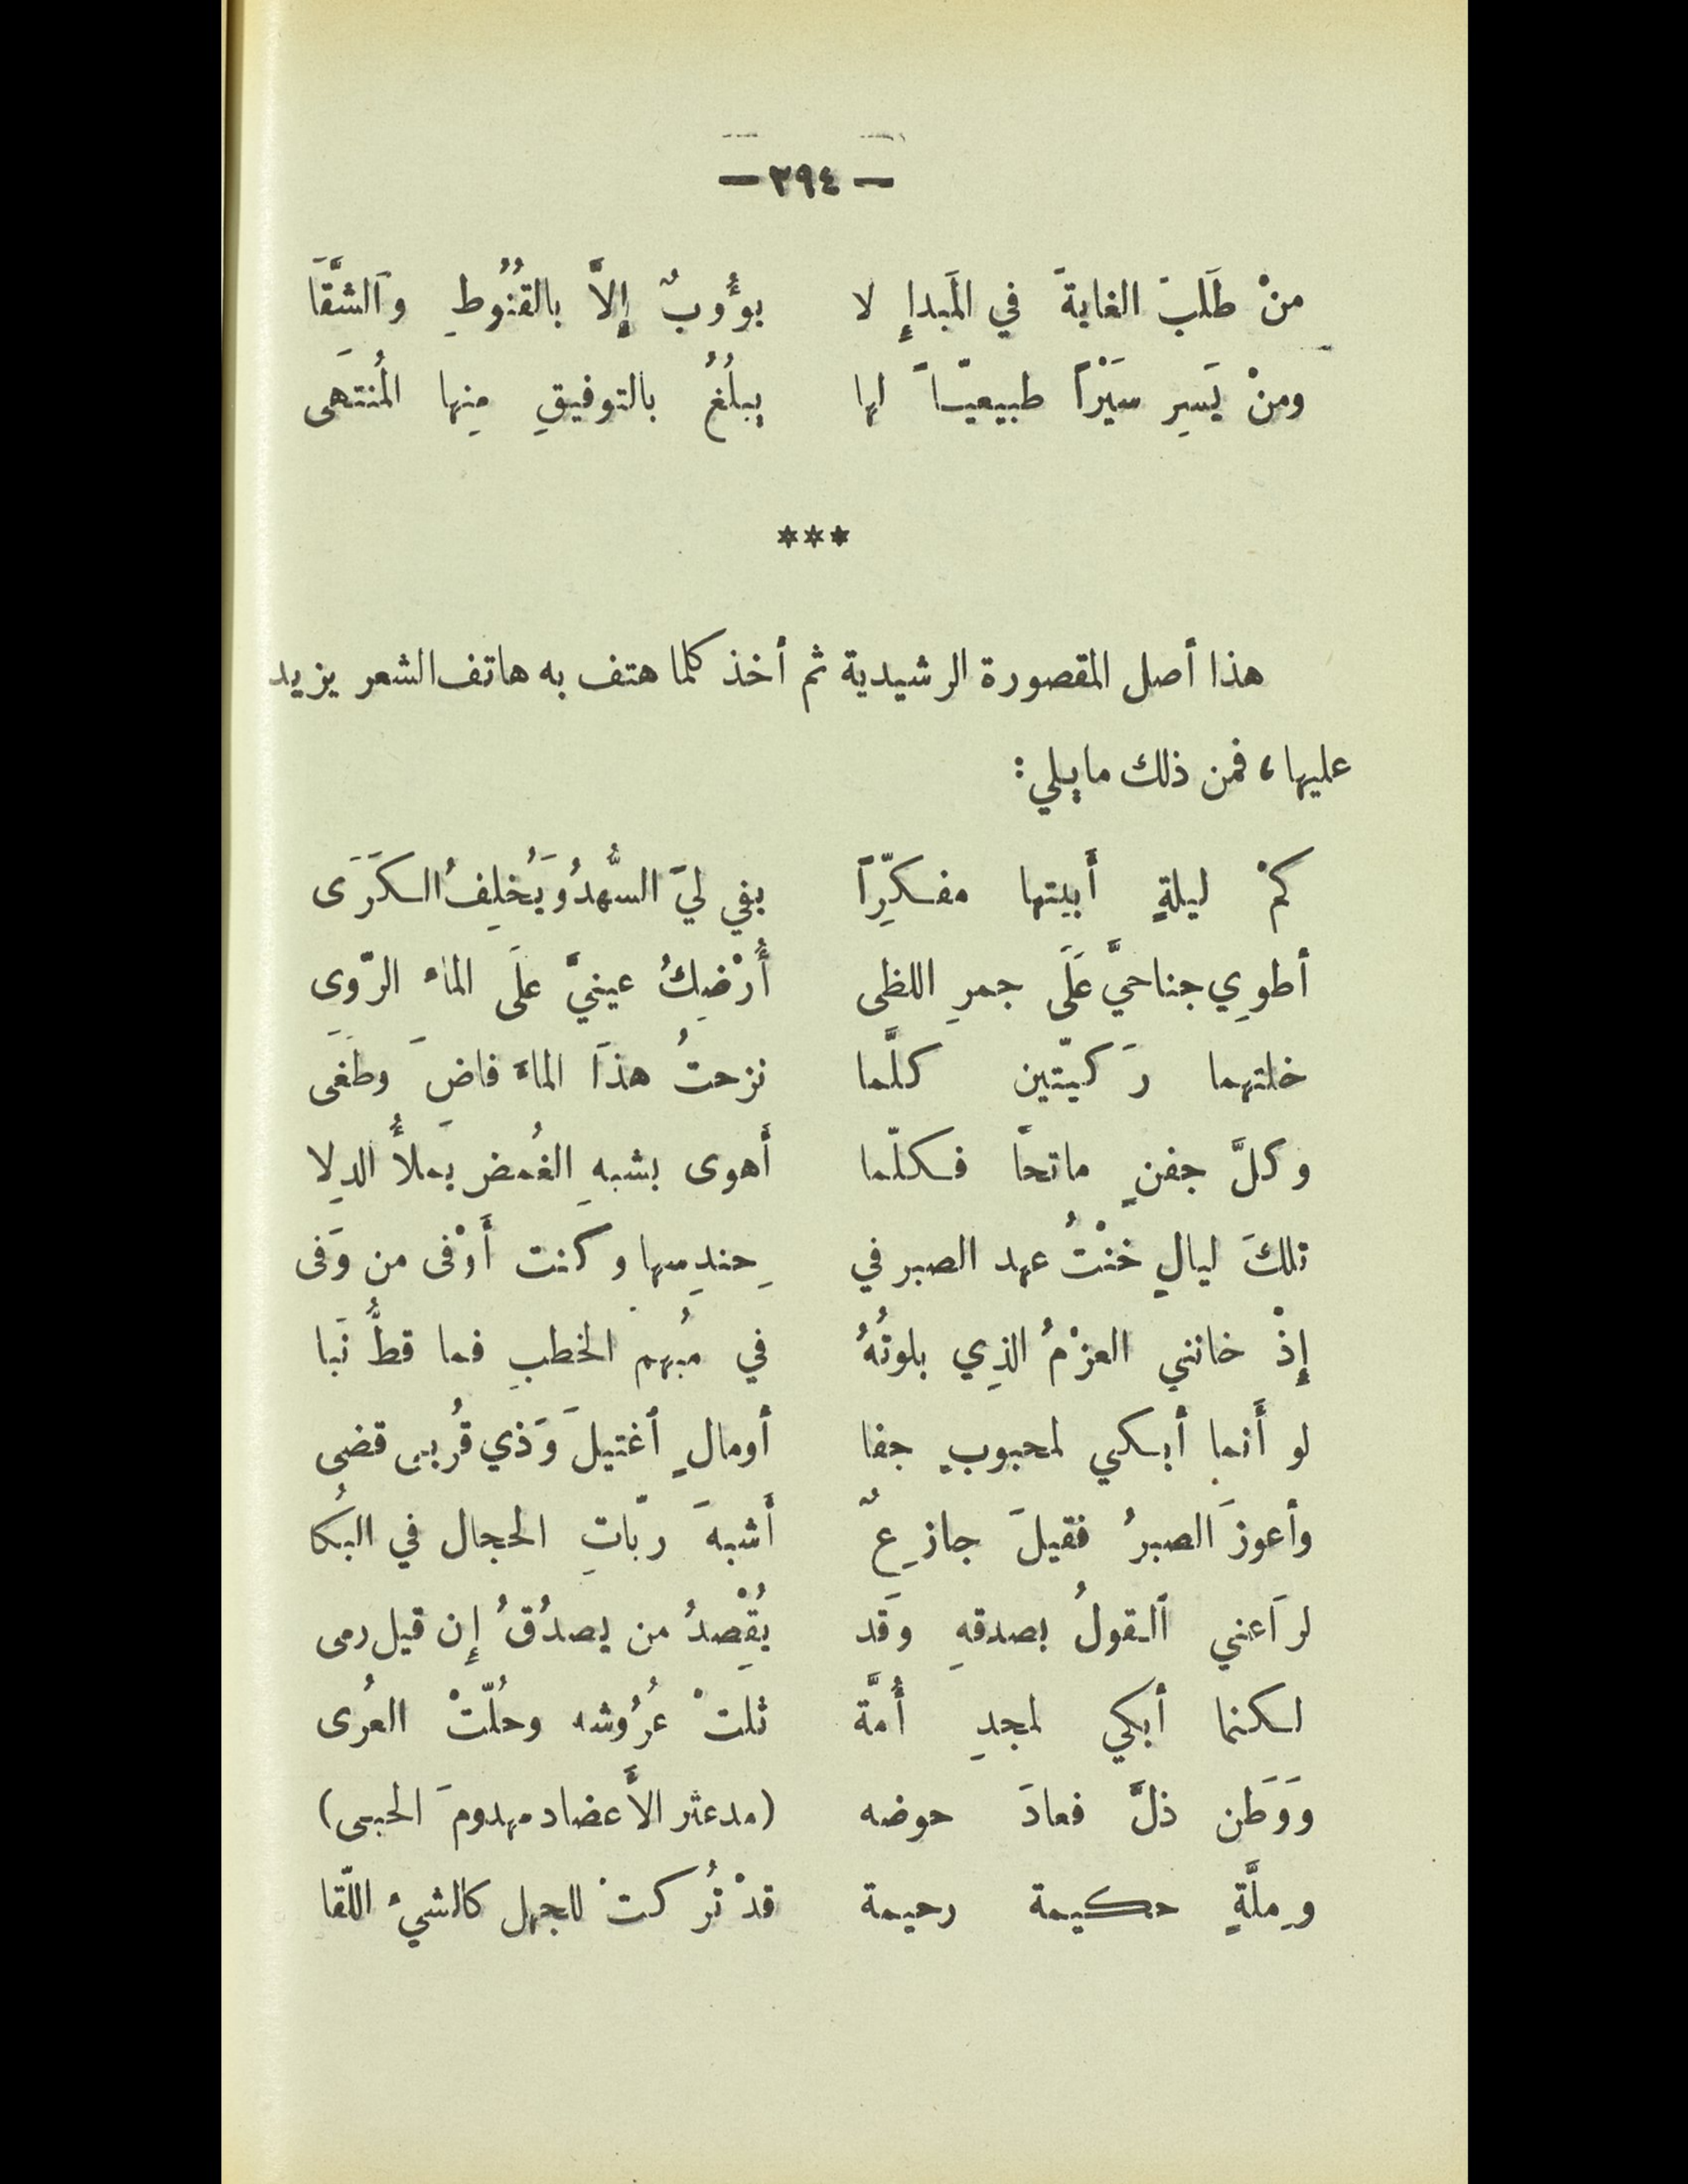 — ٢٩٤ —
منْ طَلَبَ الغايةَ في المَبدإِ لا يؤُوبُ إِلاَّ بالقُنُوطِ وَالشَّقَا
ومنْ يَسِرِ سَيْرًا طبيعيّاً لها يبلُغُ بالتوفيقِ مِنها المُنتَهَى
***
هذا أصل المقصورة الرشيدية ثم أخذ كلما هتف به هاتف الشعر يزيد
عليها، فمن ذلك ما يلي:
كمْ ليلةٍ أَبيتها مفكّرًا يفي ليَ السُّهدُ وَيُخلِفُ الكَرَى
أطوِي جناحيَّ عَلَى جمرِ اللظى أُرْضِكُ عينيَّ علَى الماء الرّوِى
خلتهما رَكيّتين كلَّما نزحتُ هذَا الماءَ فاضَ وطَغَى
وكلَّ جفنٍ ماتحًا فكلّما أَهوى بشبهِ الغُمضِ يملأُ الدِلا
تلكَ ليالٍ خنْتُ عهد الصبر في حِندِسها وكنت أَوْفى من وَفى
إِذْ خانني العزْمُ الذِي بلوتُهُ في مُبهم الخطبِ فما قطُّ نَبا
لو أَنما أبكي لمحبوبٍ جفا أومالٍ ٱغتيلَ وَذي قُربى قضى
وأعوزَ الصبرُ فقيلَ جازِعٌ أَشبهَ ربّاتِ الحجال في البُكا
لرَاعني ٱلقولُ بصدقهِ وَقد يُقْصِدُ من يصدُقُ إِن قيل رمى
لكنما أبكي لمجدِ أُمَّة ثلتْ عُرُوشه وحُلّتْ العُرى
وَوَطَن ذلَّ فعادَ حوضه (مدعثر الأَعضاد مهدومَ الجبى)
وِملَّةٍ حكيمة رحيمة قدْ تُركتْ للجهل كالشيءِ اللّقا